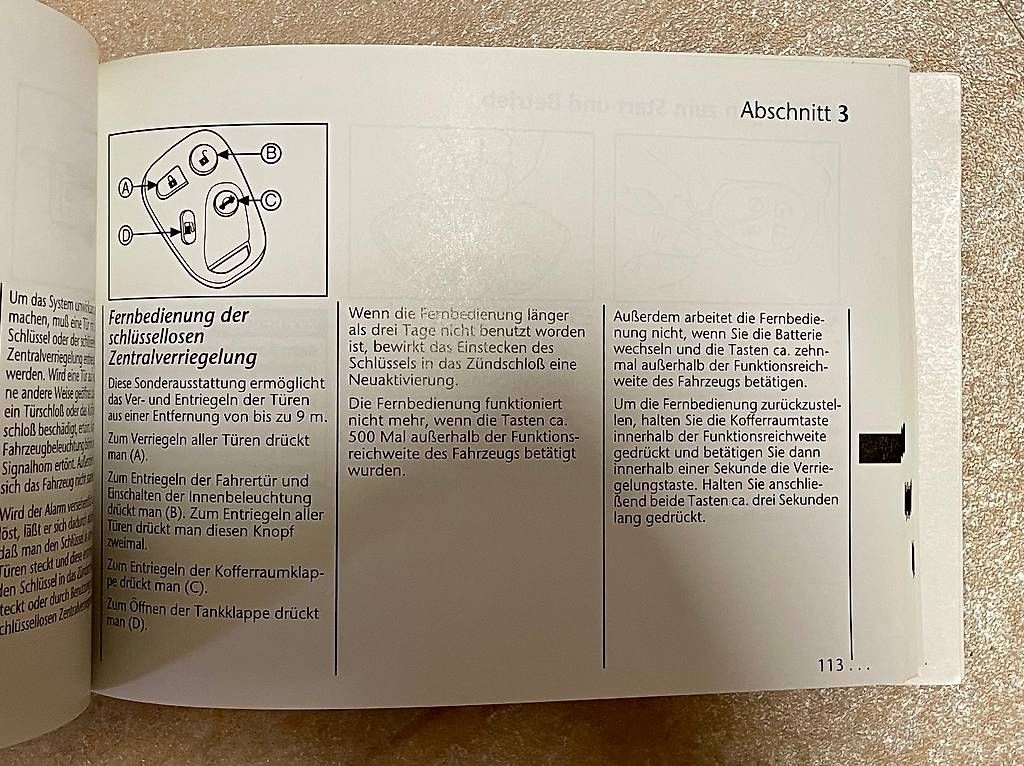 Um das System
machen, muß eine Tür
Schlüssel oder der
Zentralverriegelung
werden. Wird eine Tür
ne andere Weise
ein Türschloß oder das
schloß beschädigt, ertönt
Fahrzeugbeleuchtung
Signalhorn ertönt.
sich das Fahrzeug nicht
Wird der Alarm
löst, läßt er sich dadurch
daß man den Schlüssel in
Türen steckt und diese
den Schlüssel in das
steckt oder durch
schlüssellosen
Abschnitt 3
A
B
C
D
Fernbedienung der
schlüssellosen
Zentralverriegelung
Diese Sonderausstattung ermöglicht
das Ver- und Entriegeln der Türen
aus einer Entfernung von bis zu 9 m.
Zum Verriegeln aller Türen drückt
man (A).
Zum Entriegeln der Fahrertür und
Einschalten der Innenbeleuchtung
drückt man (B). Zum Entriegeln aller
Türen drückt man diesen Knopf
zweimal.
Zum Entriegeln der Kofferraumklap-
pe drückt man (C).
Zum Öffnen der Tankklappe drückt
man (D).
Wenn die Fernbedienung länger
als drei Tage nicht benutzt worden
ist, bewirkt das Einstecken des
Schlüssels in das Zündschloß eine
Neuaktivierung.
Die Fernbedienung funktioniert
nicht mehr, wenn die Tasten ca.
500 Mal außerhalb der Funktions-
reichweite des Fahrzeugs betätigt
wurden.
Außerdem arbeitet die Fernbedie-
nung nicht, wenn Sie die Batterie
wechseln und die Tasten ca. zehn-
mal außerhalb der Funktionsreich-
weite des Fahrzeugs betätigen.
Um die Fernbedienung zurückzustel-
len, halten Sie die Kofferraumtaste
innerhalb der Funktionsreichweite
gedrückt und betätigen Sie dann
innerhalb einer Sekunde die Verrie-
gelungstaste. Halten Sie anschlie-
ßend beide Tasten ca. drei Sekunden
lang gedrückt.
113 . . .